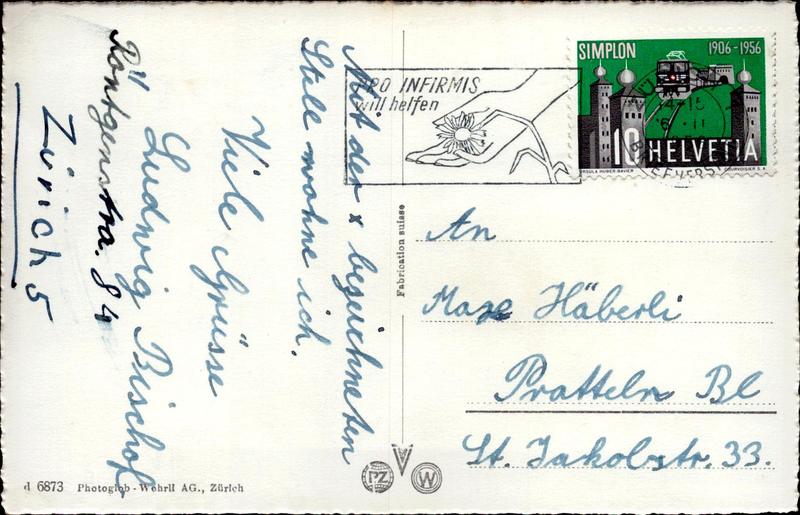 Mit der x bezeichneten
Stell wohne ich.
Viele Grüsse
Ludwig Bischof
Röntgenstra. 84
Zürich 5
PRO INFIRMIS
will helfen
SIMPLON 1906-1956
10 HELVETIA
URSULA HUBER-BAVIER COURVOISIER S.A.
Fabrication suisse
An
Max Häberli
Pratteln BL
St. Jakobstr. 33.
d 6873 Photoglob-Wehrli AG., Zürich
PZ
W